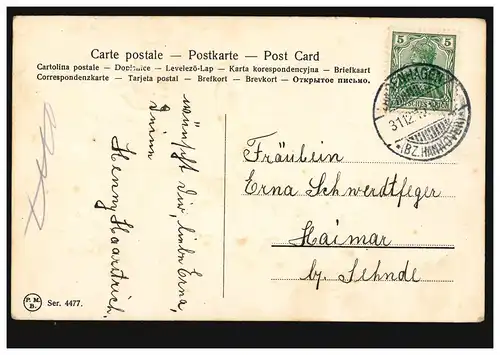 Carte postale — Postkarte — Post Card
Cartolina postale — Dopisnice — Levelező-Lap — Karta korespondencyjna — Briefkaart
Correspondenzkarte — Tarjeta postal — Brefkort — Brevkort — Открытое письмо.
5 5
31.12.
(BZ. HANNOVER)
wünscht dir, liebe Erna,
Deine
Henny
Fräulein
Erna Schwerdtfeger
Haimar
by. Sehnde
P. M.
B.
Ser. 4477.